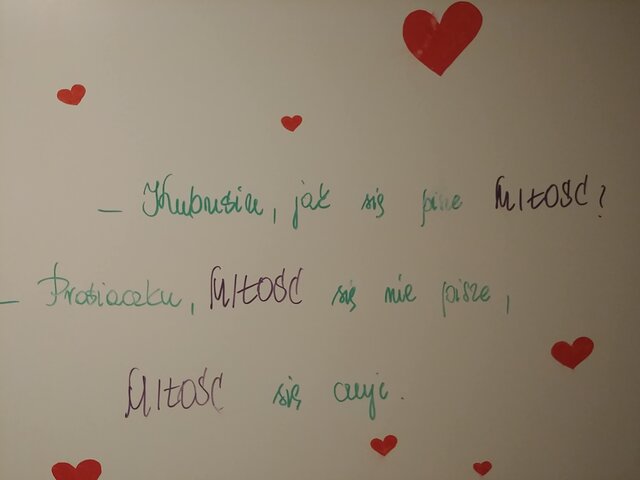 – Kubusiu, jak się pisze MIŁOŚĆ?
– Prosiaczku, MIŁOŚĆ się nie pisze,
MIŁOŚĆ się czuje.